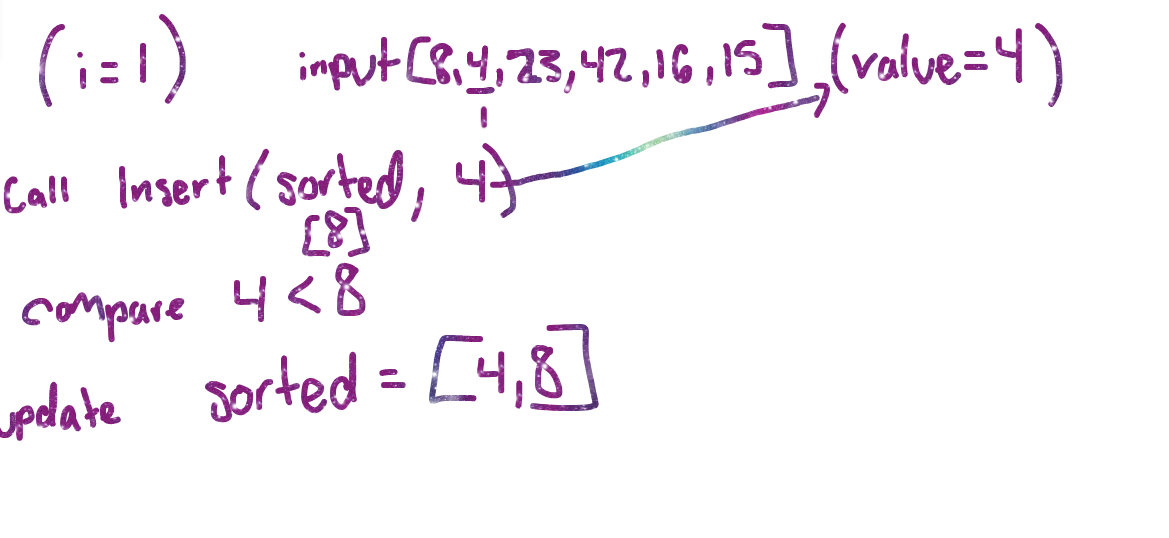 (i=1) input[8,4,23,42,16,15] (value=4)
Call Insert(sorted, 4)
[8]
compare 4 < 8
update sorted = [4,8]